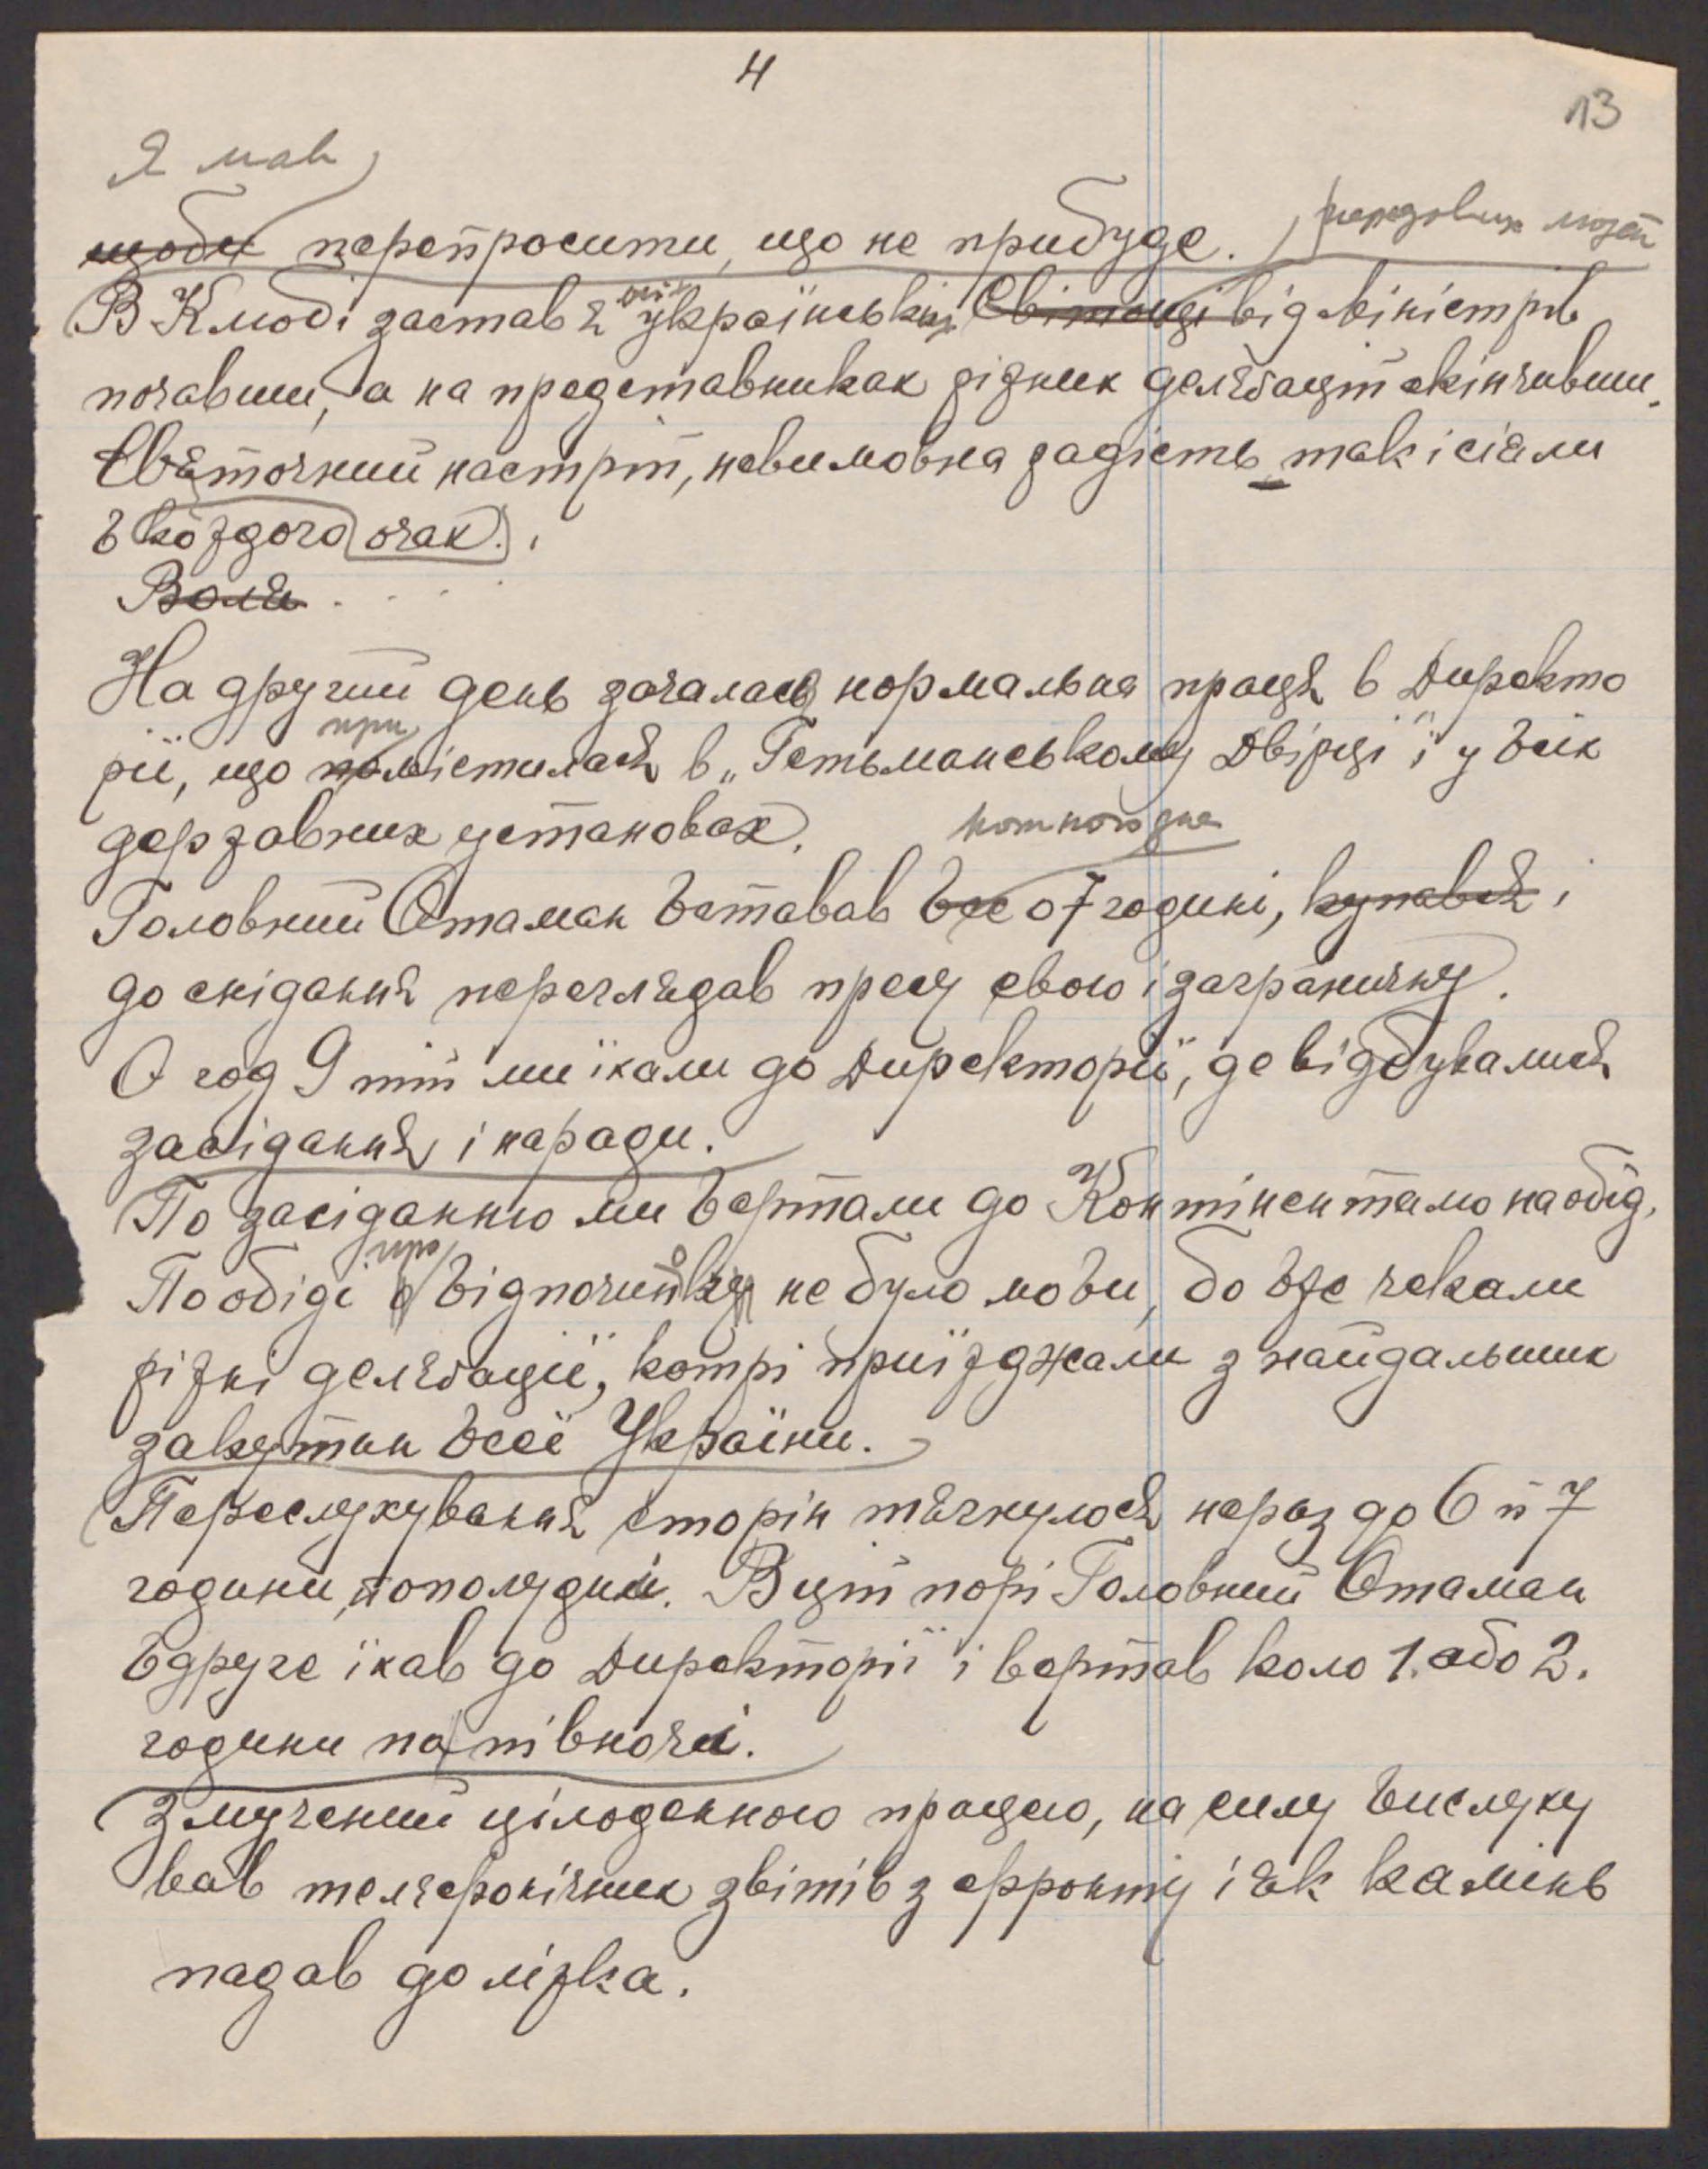 4
13
Я мав
щоби перепросити, що не прибуде. передових людей
В Клюбі застав я всіх українських Світочі від міністрів
почавши, а на представниках ріжних делєґацій скінчивши.
Святочний настрій, невимовна радість так і сіяли
в кождого очах.
Воля . . . .
На другий день зачалась нормальна праця в Директо
рії, що помістилася при в „Гетьманському Двірці" і у всіх
державних установах.
Головний Отаман вставав все щоднини о 7 годині, купався і
до снідання переглядав пресу свою і заграничну.
О год 9 тій ми їхали до Директорії, де відбувалися
засідання і наради.
По засіданню ми вертали до Контіненталю на обід.
По обіді про відпочинок не було мови, бо вже чекали
ріжні делєґації, котрі приїжджали з найдальших
закутин всеї України.
Переслухування сторін тягнулося нераз до 6 й 7
години, пополудні. В цій порі Головний Отаман
вдруге їхав до Директорії і вертав коло 1. або 2.
години по півночі.
Змучений цілоденною працею, на силу вислуху
вав телєфонічних звітів з фронту і як камінь
падав до ліжка.